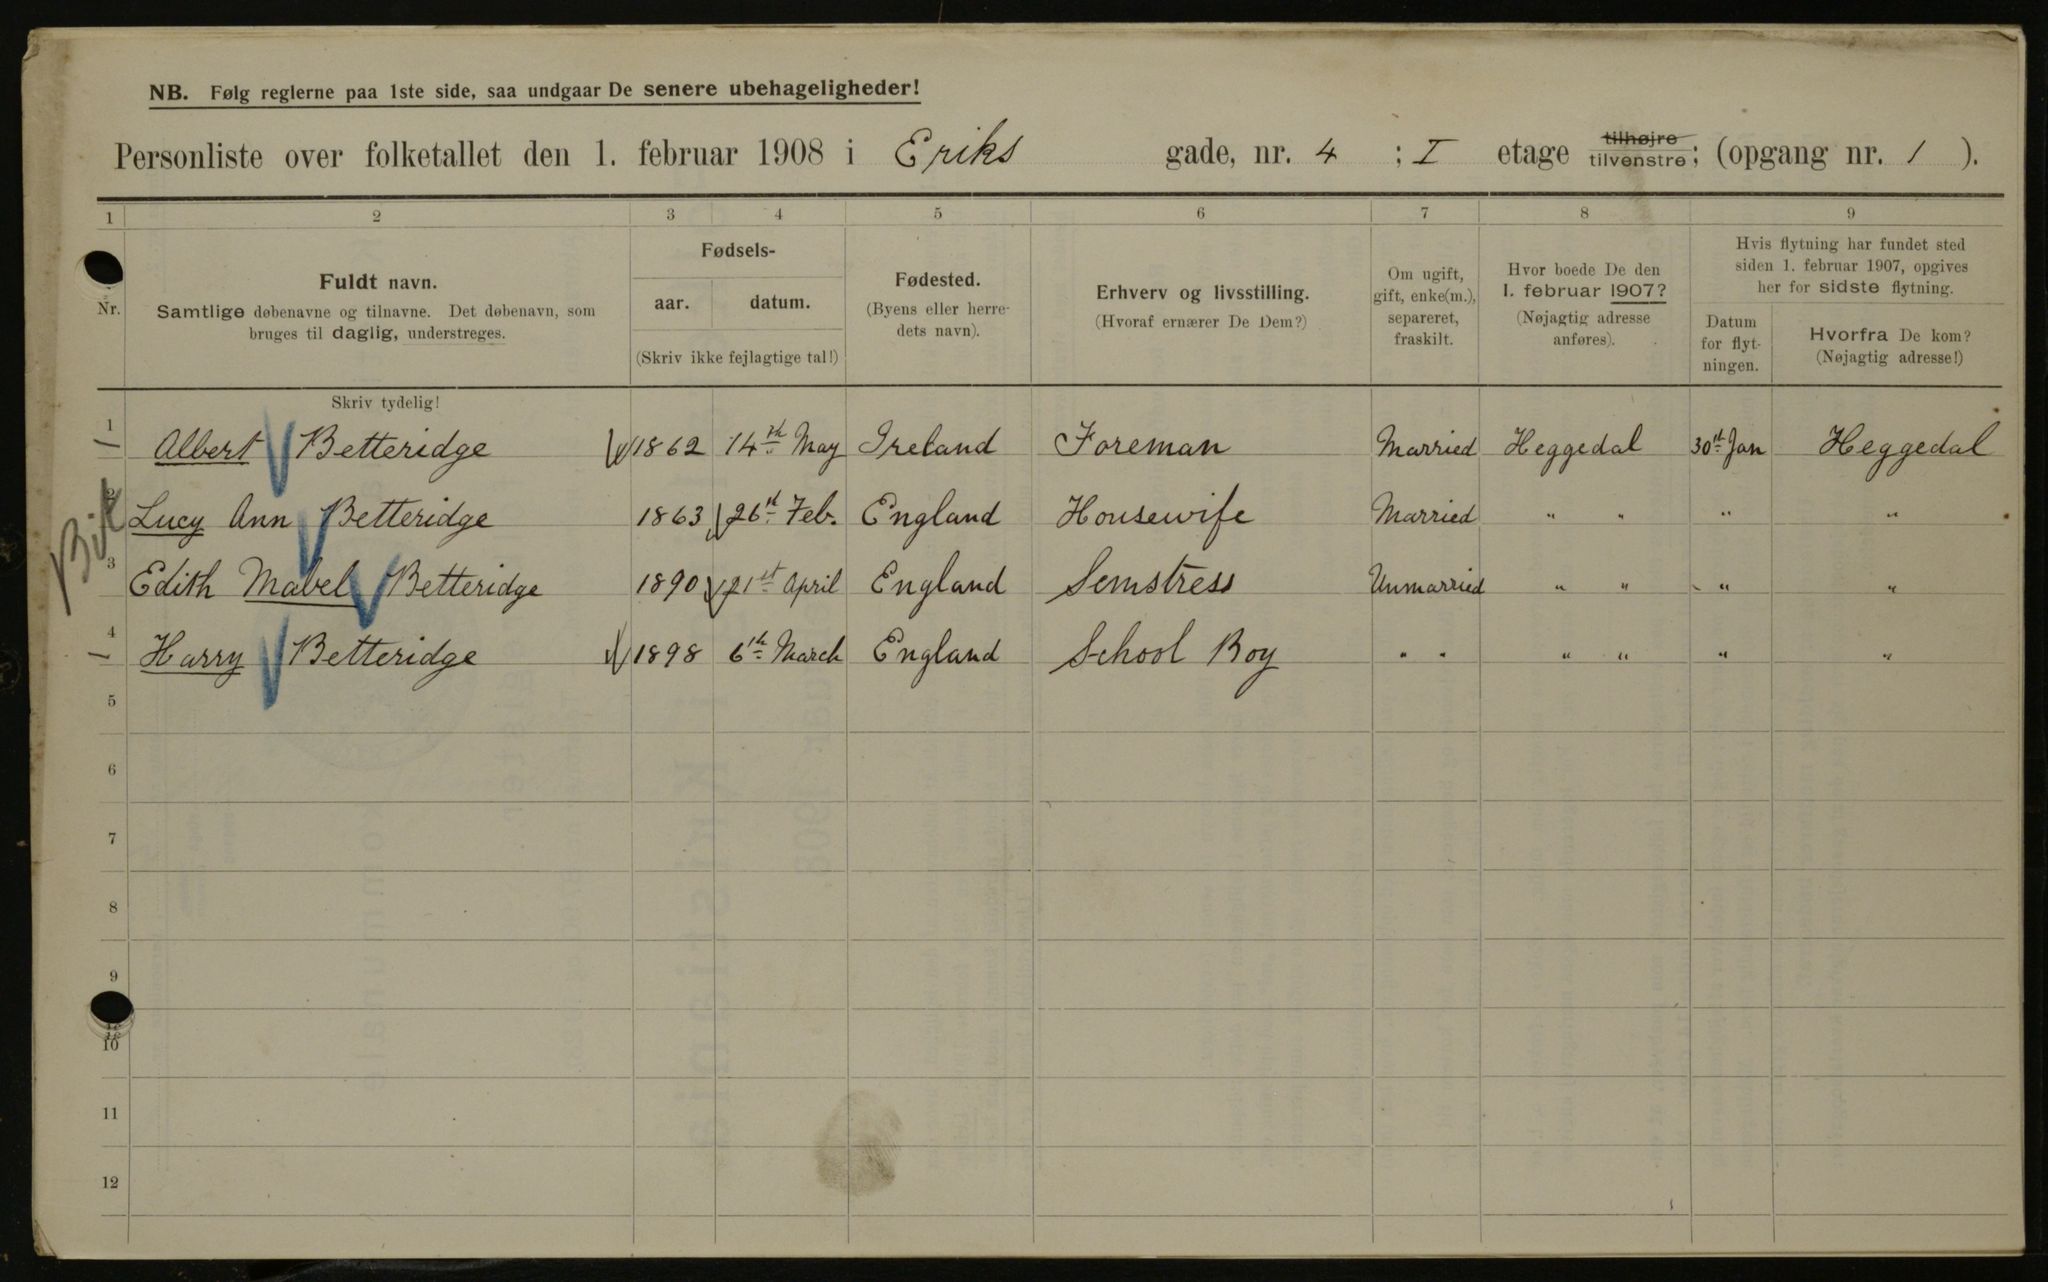 NB. Følg reglerne paa 1ste side, saa undgaar De senere ubehageligheder!
Personliste over folketallet den 1. februar 1908 i Eriks gade, nr. 4 ; I etage tilhøjre tilvenstre; (opgang nr. 1 ).
1 2 3 4 5 6 7 8 9
Nr.
Fuldt navn.
Samtlige døbenavne og tilnavne. Det døbenavn, som
bruges til daglig, understreges.
Fødsels-
aar. datum.
(Skriv ikke fejlagtige tal!)
Fødested.
(Byens eller herre-
dets navn).
Erhverv og livsstilling.
(Hvoraf ernærer De Dem?)
Om ugift,
gift, enke(m.),
separeret,
fraskilt.
Hvor boede De den
1. februar 1907?
(Nøjagtig adresse
anføres).
Hvis flytning har fundet sted
siden 1. februar 1907, opgives
her for sidste flytning.
Datum
for flyt-
ningen.
Hvorfra De kom?
(Nøjagtig adresse!)
Skriv tydelig!
1 Albert Betteridge 1862 14th May Ireland Foreman Married Heggedal 30st Jan Heggedal
2 Lucy Ann Betteridge 1863 26st Feb. England Housewife Married " " " "
3 Edith Mabel Betteridge 1890 21st April England Semstress Unmarried " " " "
4 Harry Betteridge 1898 6th March England School Boy " " " " " "
5
6
7
8
9
10
11
12